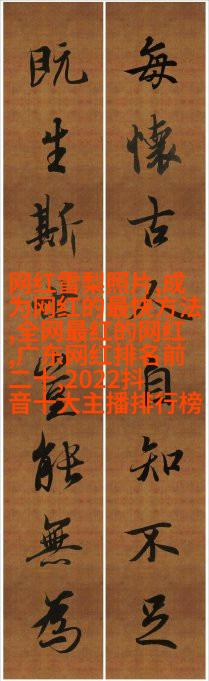 每懷古人自知不足
既生斯世豈能無為
网红雪梨照片,成
为网红的最快方法
,全网最红的网红
,广东网红排名前
二十,2022抖
音十大主播排行榜